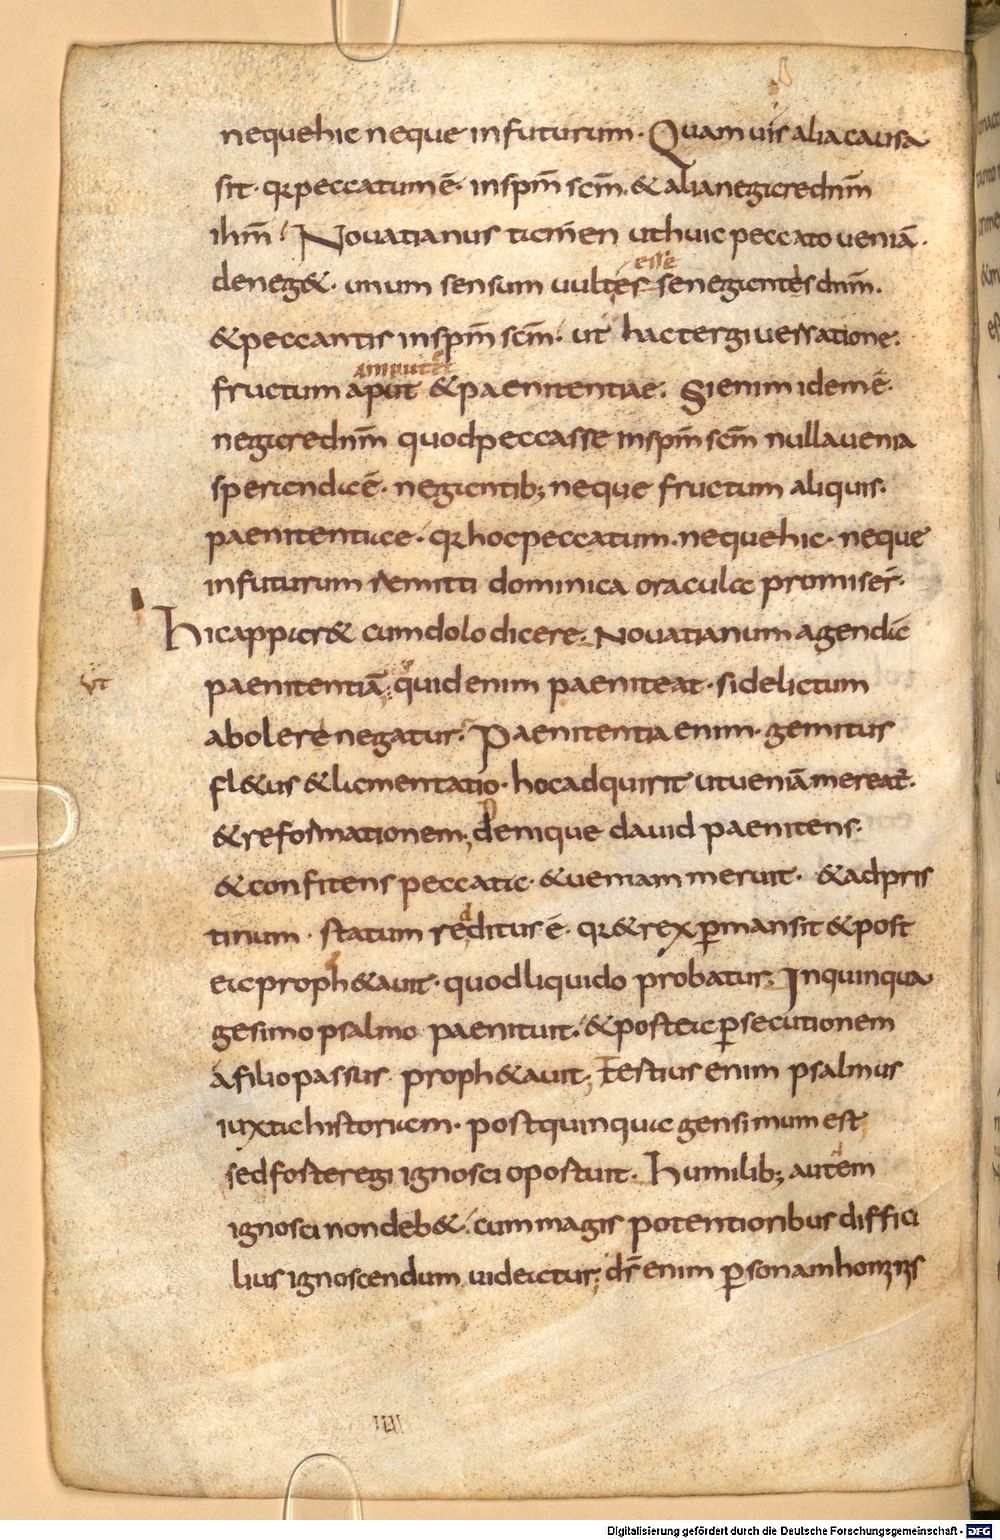 neque hic neque in futurum · Quamuis alia causa
sit · qꝛ peccatum ē · in spm̄ scm̄ · & alia negare dnm̄
ihm̄ · Nouatianus tamen ut huic peccato ueniā ·
deneg& · unum sensum uult esse negantes dnm̄ ·
esse
& peccantis in spm̄ scm̄ · ut hac tergiuersatione ·
amputet
fructum aput & paenitentiae · Si enim idem ē ·
negare dnm̄ quod peccasse in spm̄ scm̄ nulla uenia
speranda ē · negantib; neque fructum aliquis ·
paenitentiae · qꝛ hoc peccatum · neque hic · neque
in futurum remitti dominica oracula promiser̄ ·
Hic appar& cum dolo dicere · Nouatianum agenda
ut
paenitentiā · quid enim paeniteat · si delictum
abolere negatur · Paenitentia enim · gemitus
fl&us & lamentatio · hoc adquirit ut ueniā mereat̄ ·
& reformationem; denique dauid paenitens ·
& confitens peccata · & ueniam meruit · & ad pris
tinum · statum redditus ē · qꝛ & rex ꝑmansit & post
ea proph&auit · quod liquido probatur · In quinqua
gesimo psalmo paenituit · & postea ꝑsecutionem
a filio passus · proph&auit; Testius enim psalmus
iuxta historiam · post quinquagensimum est
sed fosteregi ignosci oportuit · humilib; autem
ignosci non deb& · cum magis potentioribus diffici
lius ignoscendum uideatur; ds̄ enim ꝑsonam hominis
IIII
Digitalisierung gefördert durch die Deutsche Forschungsgemeinschaft - DFG